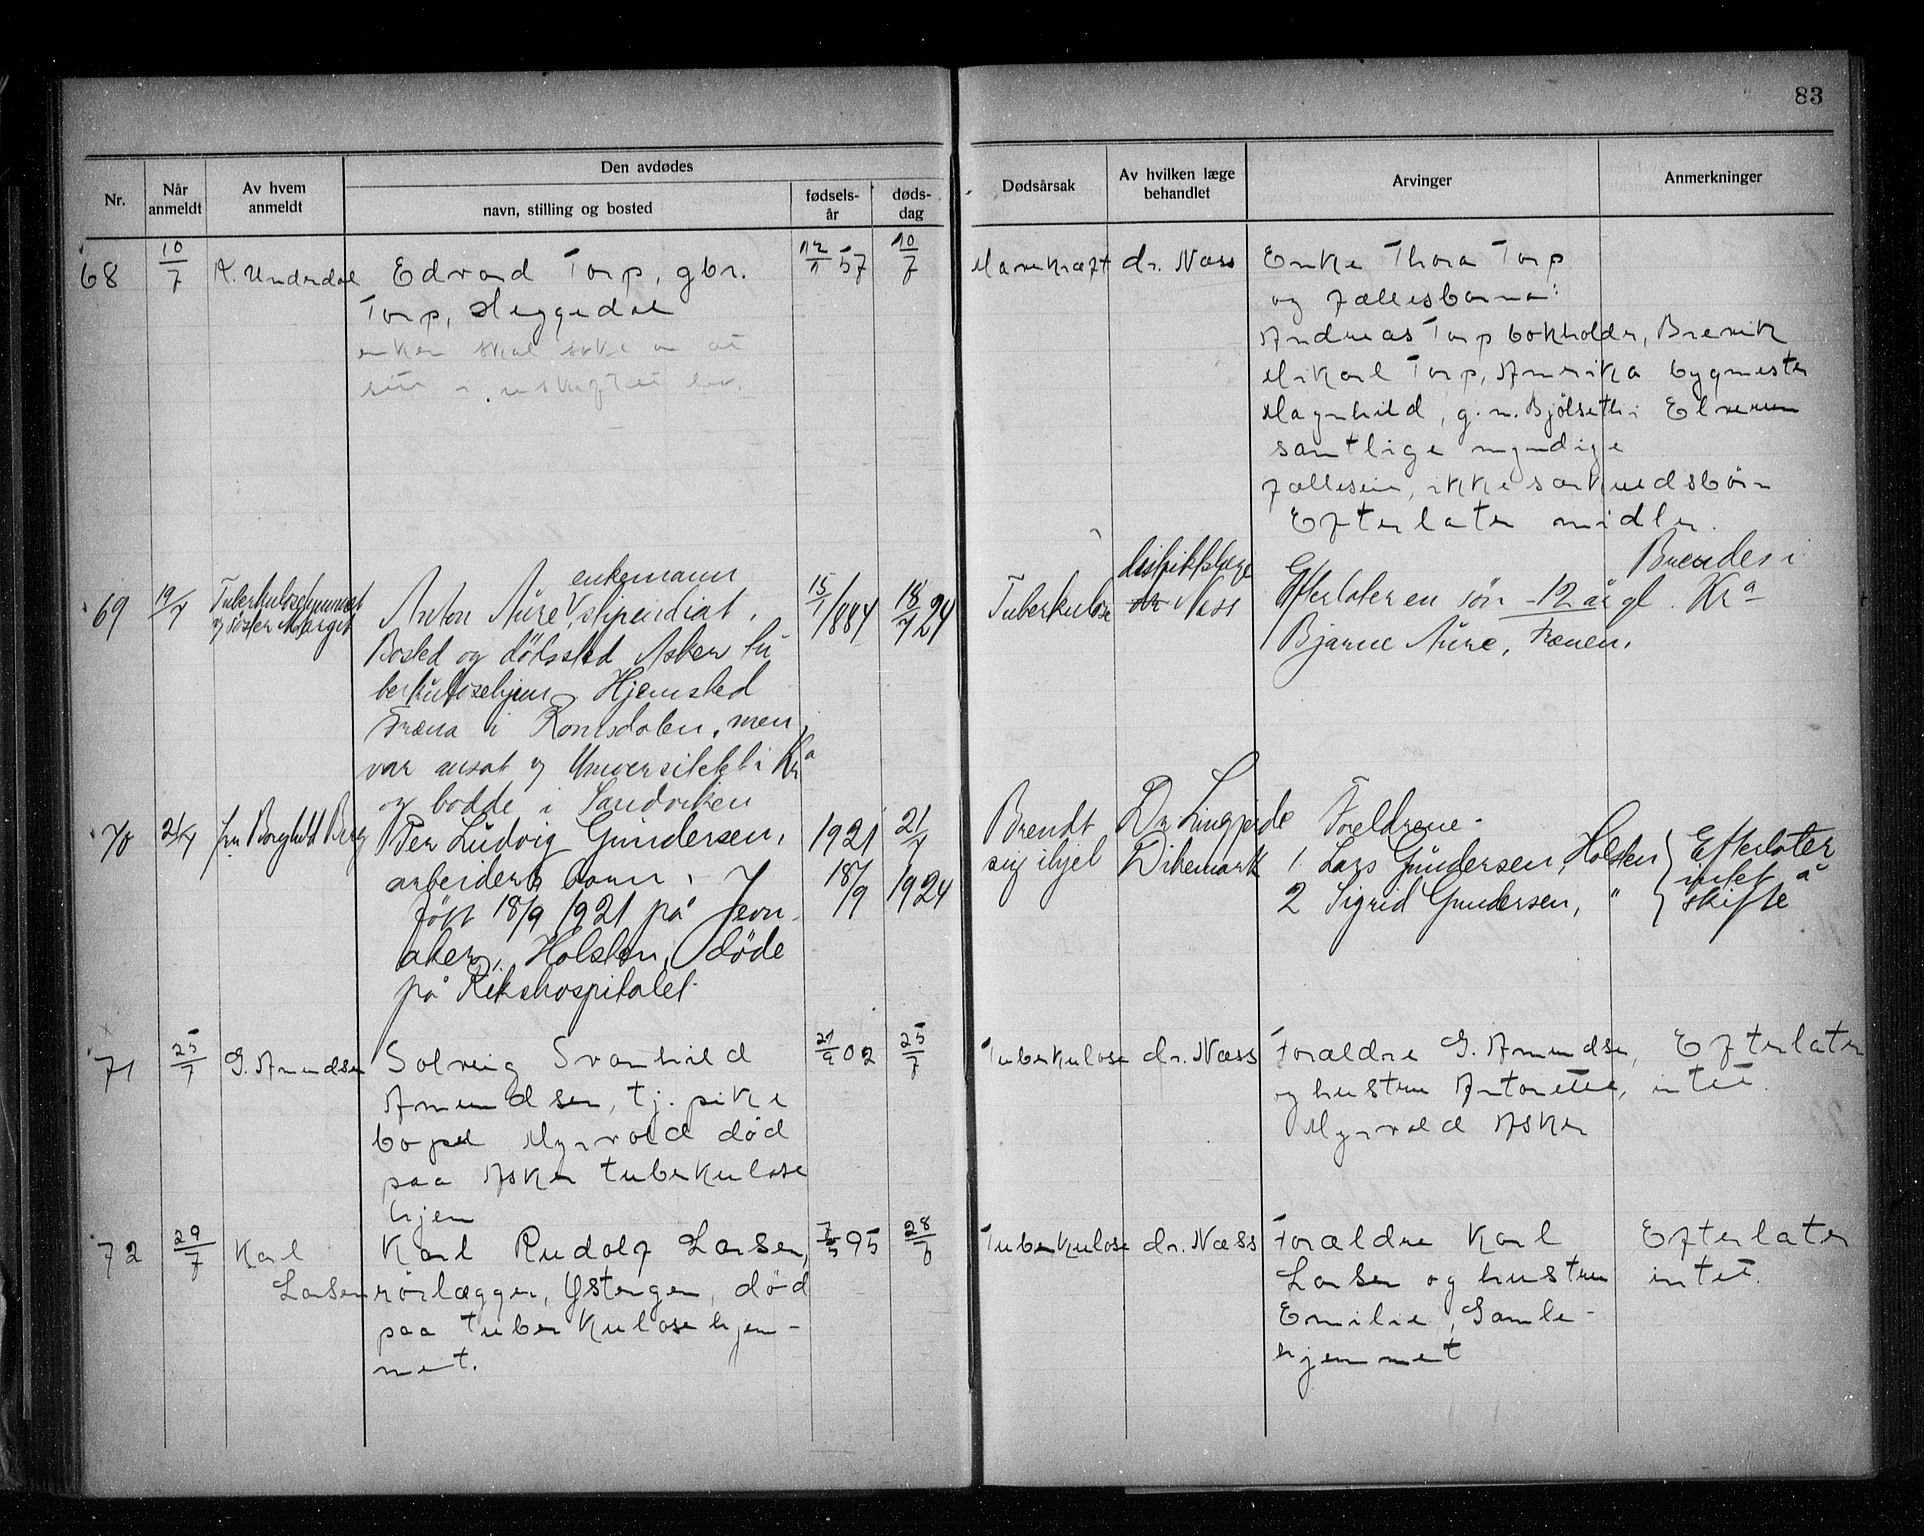 83
Nr.
Når anmeldt
Av hvem anmeldt
Den avdødes
navn, stilling og bosted
fødsels-år
døds-dag
Dødsårsak
Av hvilken læge behandlet
Arvinger
Anmerkninger
68
10/7
A. Underdal
Edvard Torp, gbr.
Torp, Heggedal
enken skal søke om at
sitte i uskiftet bo.
12/11 57
10/7
Mavekræft
dr. Næss
Enke Thora Torp
og fællesbarna:
Andreas Torp bokholder, Brevik
Mikael Torp, Amerika bygmester
Magnhild, g.m. Bjølseth i Elverum
samtlige myndige
fælleseie, ikke særkuldsbørn
Efterlater midler.
69
19/7
Tuberkulosehjemmet
og søster Margit
enkemann
Anton Aure V, stipendiat.
Bosted og dødssted Asker tu-
berkulosehjem, Hjemsted
Fræna i Romsdalen, men
var ansat v Universitetet i Kra
og bodde i Sandviken
15/1 1884
18/7 24
Tuberkulose
distriktslæge
dr Næss
Efterlater en søn - 12 år gl.
Bjarne Aure, Frænen.
Brendes i
Kra
70
21/7
fru Borghild Berg
Per Ludvig Gundersen,
arbeiders barn,
født 18/9 1921 på Jevn-
aker, Holsten, døde
på Rikshospitalet.
1921
18/9
21/7
1924
Brendt
sig ihjel
Dr Lingjærde
Dikemark
Foreldrene -
1. Lars Gundersen, Holsten
2 Sigrid Gundersen, "
Efterlater
intet å
skifte
71
25/7
G. Amundsen
Solveig Svanhild
Amundsen, tj. pike
bopel Myrvold død
paa Asker tuberkulose
hjem
21/9 02
25/7
Tuberkulose
dr. Næss
Forældre G. Amundsen,
og hustru Antonette,
Myrvold Asker
Efterlater
intet.
72
29/7
Karl
Larsen
Karl Rudolf Larsen,
rørlægger, Ystengen, død
paa tuberkulosehjem-
met.
7/5 95
28/7
Tuberkulose
dr. Næss
Forældre Karl
Larsen og hustru
Emilie, Gamle-
hjemmet
Efterlater
intet.